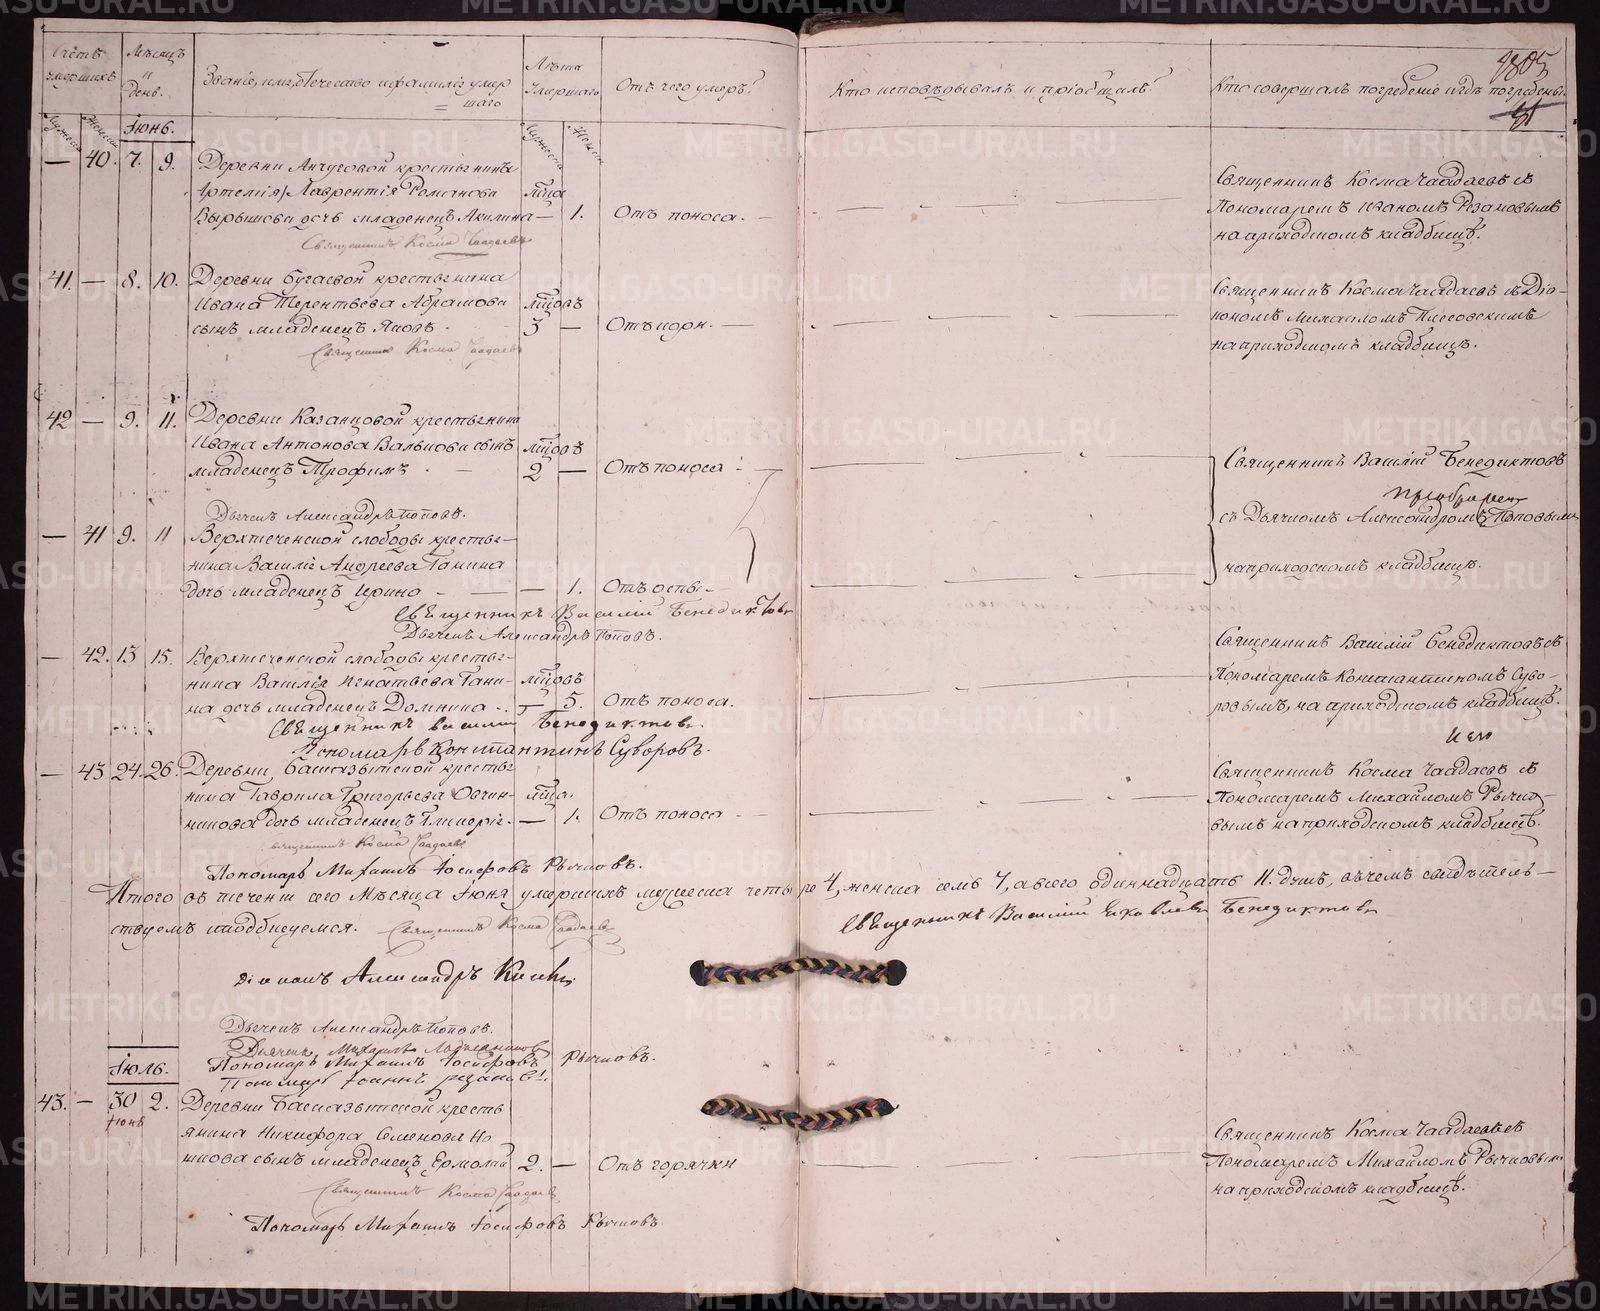 Счетъ умершихъ
Мѣсяцъ и День.
Званіе, имя, Отечество и фамилія умершаго
Лѣта Умершаго
Отъ чего умеръ?
Кто исповѣдывалъ и пріобщилъ?
Кто совершалъ погребеніе и гдѣ погребены.
Мужеска
Женска
Іюнь.
Мужеска
Женска
— 40. 7. 9. Деревни Анчуговой крестьянина
Лаврентія Романова мѣца
Вырышова дочь младенецъ Акилина — 1. Отъ поноса.
Священникъ Косма Чаадаевъ
Священникъ Косма Чаадаевъ съ
Пономаремъ Иваномъ Резановымъ
на приходскомъ кладбищѣ.
41. — 8. 10. Деревни Бугаевой крестьянина
Ивана Терентьева Абрамова мцовъ
сынъ младенецъ Яковъ. 3 — Отъ кори.
Священникъ Косма Чаадаевъ
Священникъ Косма Чаадаевъ съ Діа-
кономъ Михаиломъ
на приходскомъ кладбищѣ.
42 — 9. 11. Деревни Казанцовой крестьянина
Ивана Антонова сынъ мцовъ
младенецъ Трофимъ. 2 — Отъ поноса
Дьячекъ Александръ Поповъ.
Священникъ Василій Бенедиктовъ
съ Дьячкомъ Александромъ Поповымъ
на приходскомъ кладбищѣ.
— 41 9. 11 Верхтеченской слободы кресть-
янина Василія Андреева Ганина
дочь младенецъ Ирина — 1. Отъ оспы
Священникъ Василій Бенедиктовъ
Дьячекъ Александръ Поповъ.
— 42. 13 15. Верхтеченской слободы кресть-
янина Василія Игнатьева Гани- мцовъ
на дочь младенецъ Домнина — 5. Отъ поноса.
Священникъ Василій Бенедиктовъ
Пономарь Константинъ Суворовъ.
Священникъ Василій Бенедиктовъ съ
Пономаремъ Константиномъ Суво-
ровымъ, на приходскомъ кладбищѣ.
— 43 24. 26. Деревни крестья
нина Гаврила Григорьева Овчин- мца.
никова дочь младенецъ Гликерія — 1. Отъ поноса
Священникъ Косма Чаадаевъ
Пономарь Михаилъ Іосифовъ Рычковъ.
Священникъ Косма Чаадаевъ съ
Пономаремъ Михайломъ Рычко-
вымъ на приходскомъ кладбищѣ.
Итого въ теченіи сего Мѣсяца Іюня умершихъ мужеска четыре 4, женска семь 7, а всего одиннадцать 11. душъ, въ чемъ свидѣтель-
ствуемъ и подписуемся. Священникъ Косма Чаадаевъ
Священникъ Василій Яковлевъ Бенедиктовъ
Діаконъ Александръ
Дьячекъ Александръ Поповъ.
Дьячекъ Михаилъ
Пономарь Михаилъ Іосифовъ Рычковъ.
Пономарь Іоаннъ Резановъ.
Іюль.
43. — 30 2. Деревни кресть
Іюня
янина Никифора Семенова Но
сынъ младенецъ Ермолай 2. — Отъ горячки
Священникъ Косма Чаадаевъ
Пономарь Михаилъ Іосифовъ Рычковъ.
Священникъ Косма Чаадаевъ съ
Пономаремъ Михайломъ Рычковымъ
на приходскомъ кладбищѣ.
METRIKI.GASO-URAL.RU